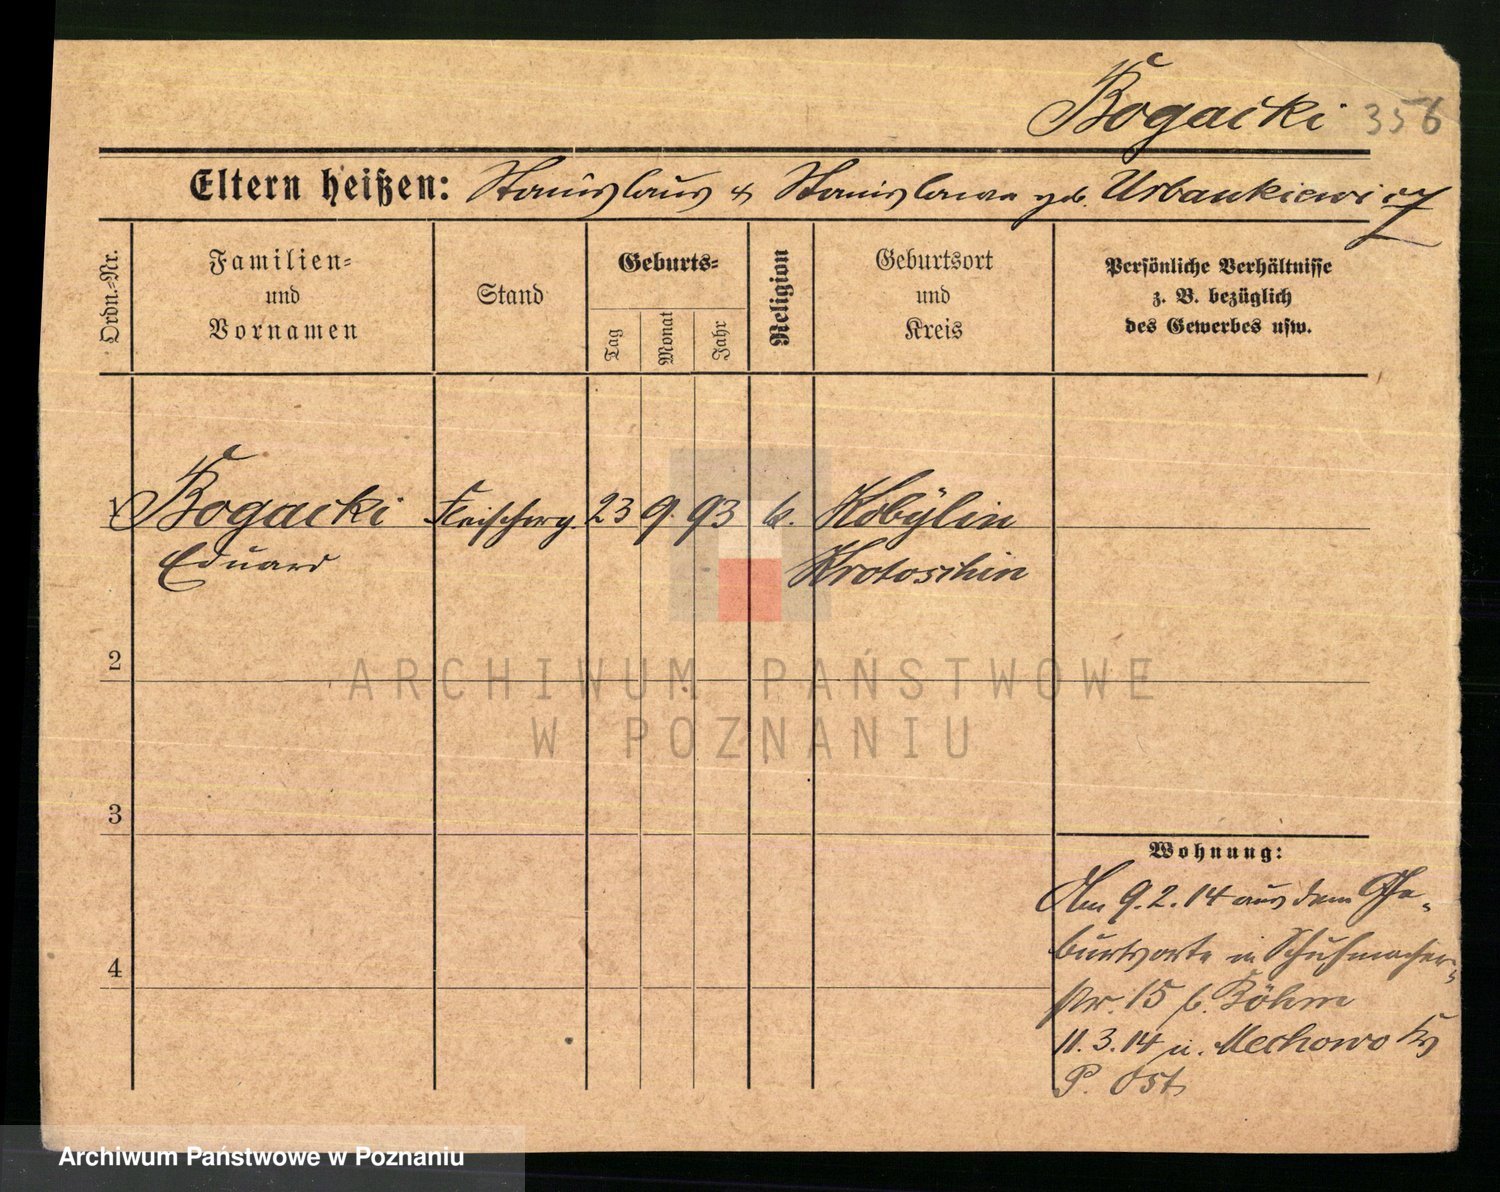 Bogacki 356
Eltern heißen: Stanislaus & Stanislawa geb. Urbankiewicz
Ordn.-Nr.
Familien-
und
Vornamen
Stand
Geburts-
Tag
Monat
Jahr
Religion
Geburtsort
und
Kreis
Persönliche Verhältnisse
z. B. bezüglich
des Gewerbes usw.
1 Bogacki Fleischerg. 23 9. 93 k. Kobylin
Eduard Krotoschin
2
ARCHIWUM PAŃSTWOWE
W POZNANIU
3
Wohnung:
Am 9.2.14 aus dem Ge-
burtsorte in Schuhmacher-
str. 15 b. Böhm
4
11.3.14 n. Mechowo Krs
P. Ost
Archiwum Państwowe w Poznaniu